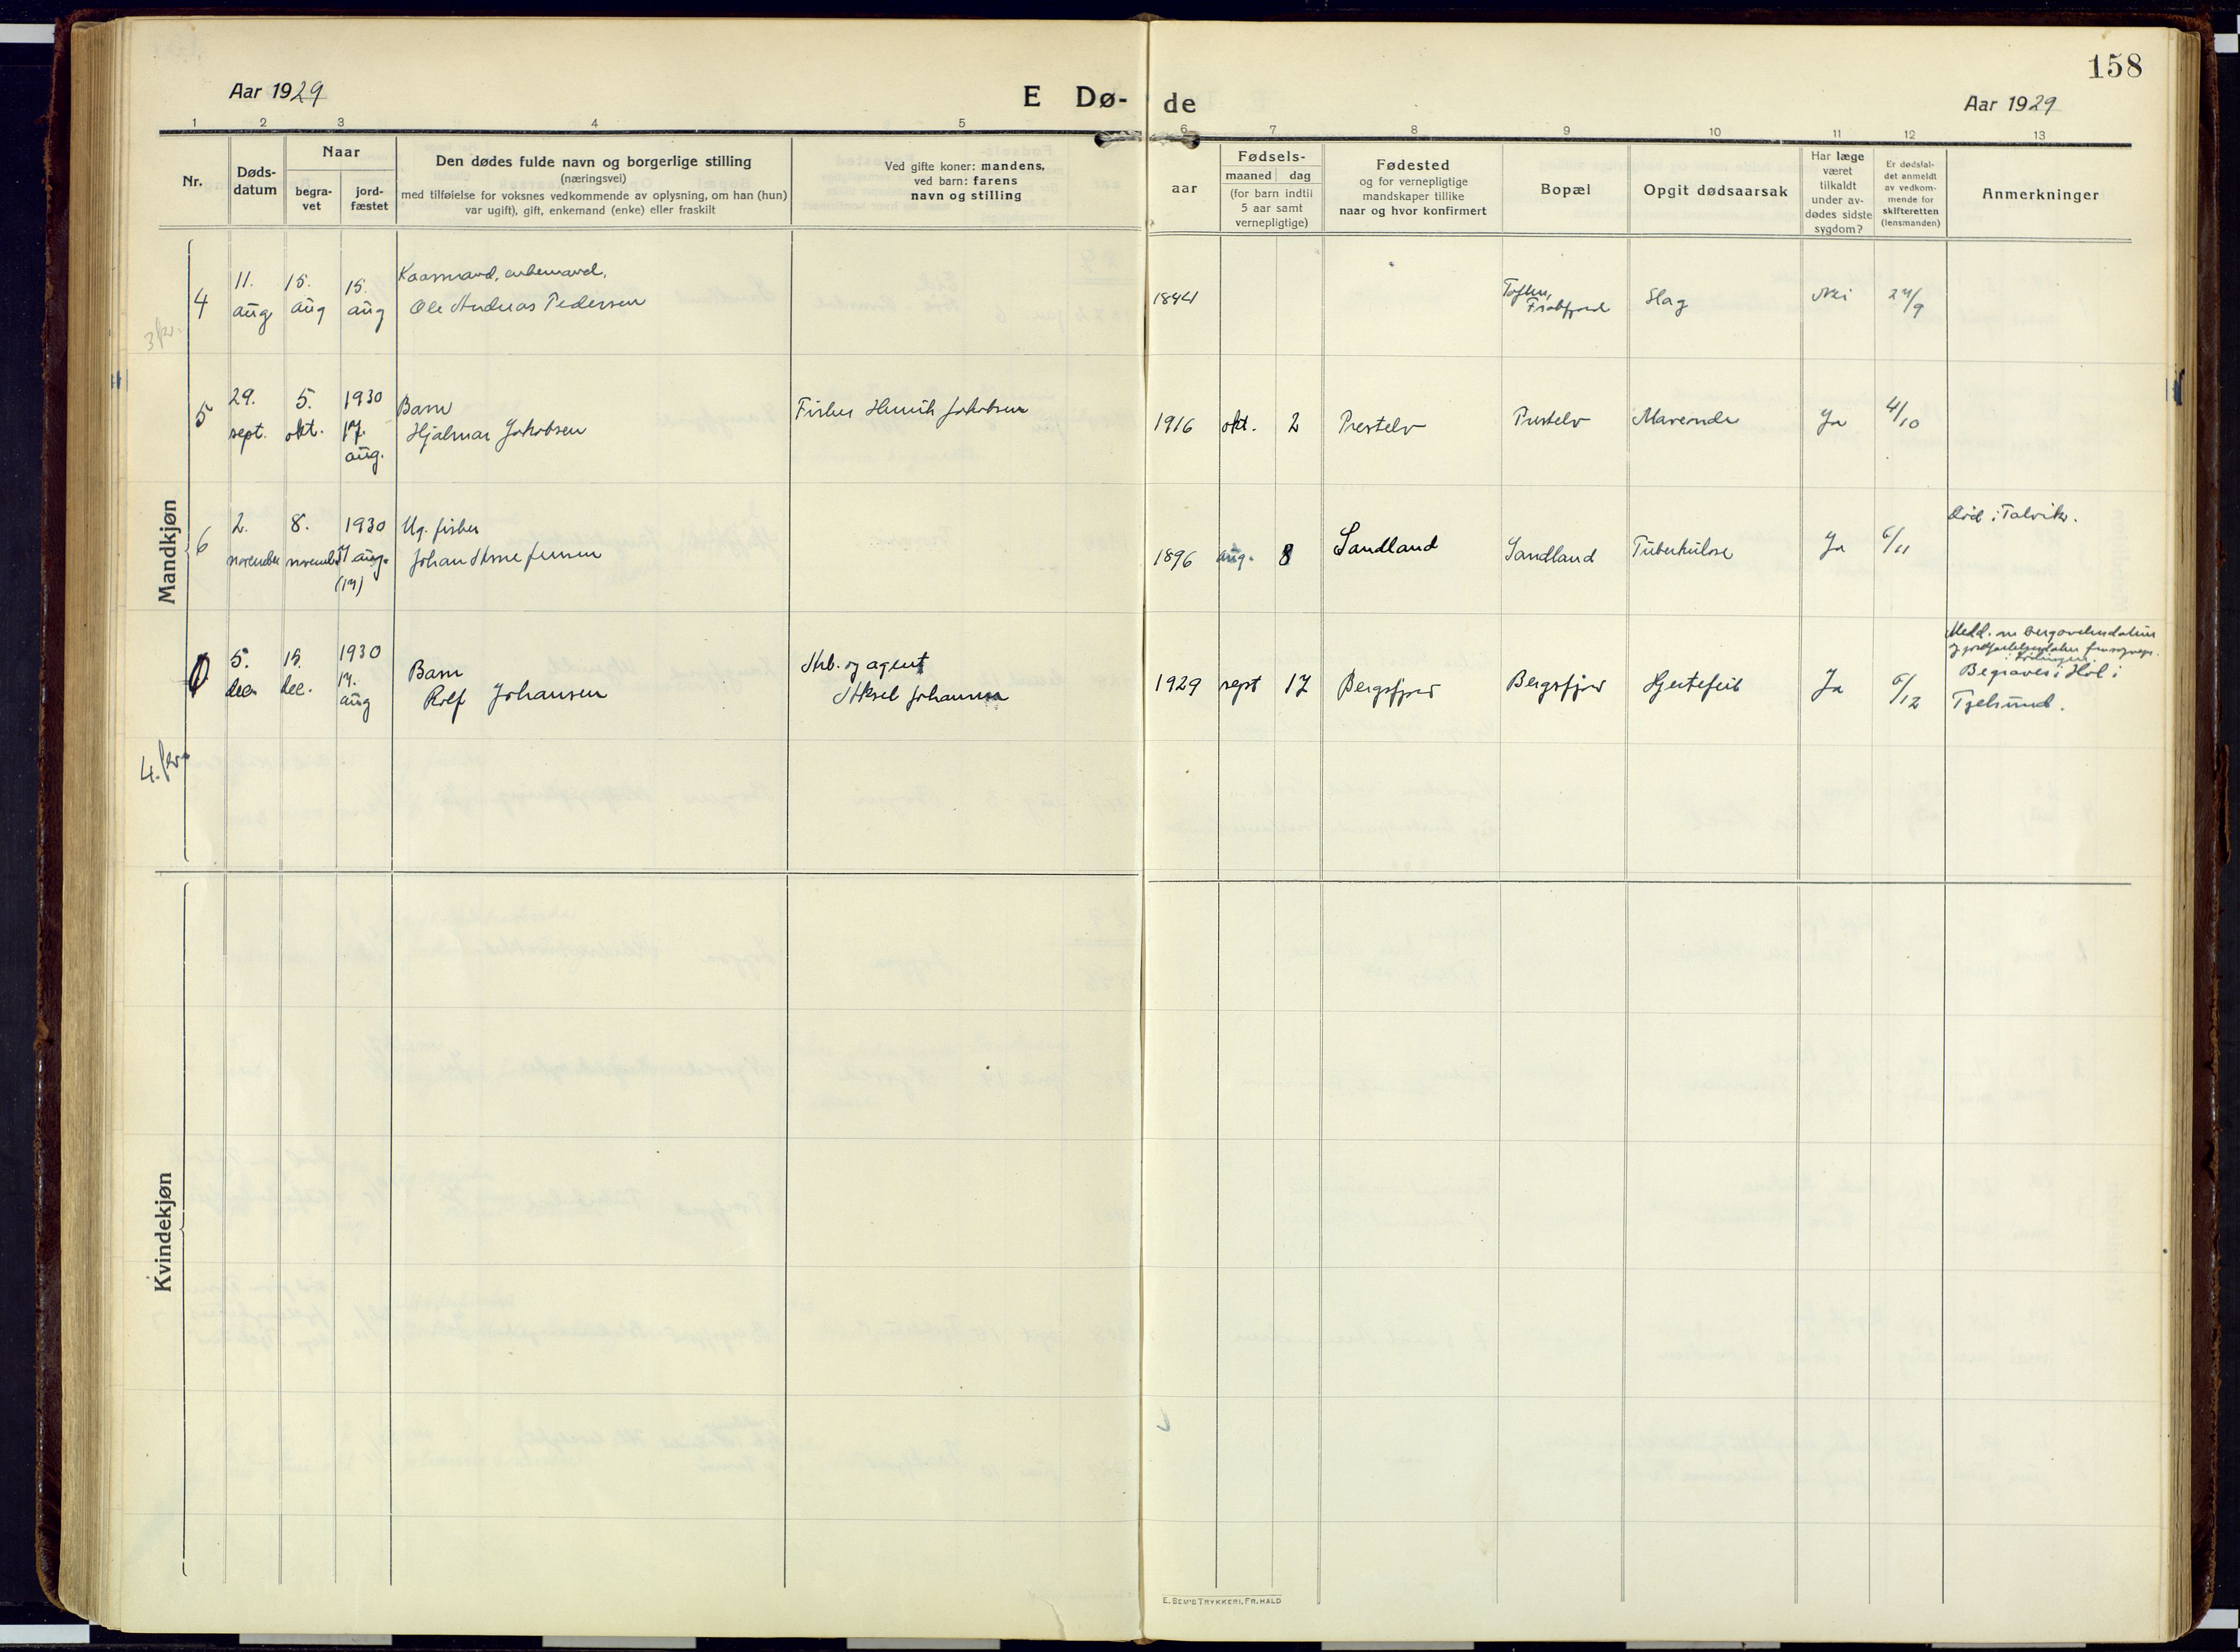 158
Aar 1929
E Dø-
de
Aar 1929
1 2 3 4 5 6 7 8 9 10 11 12 13
Nr.
Døds-
datum
Naar
begra-
vet
jord-
fæstet
Den dødes fulde navn og borgerlige stilling
(næringsvei)
med tilføielse for voksnes vedkommende av oplysning, om han (hun)
var ugift), gift, enkemand (enke) eller fraskilt
Ved gifte koner: mandens,
ved barn: farens
navn og stilling
aar
Fødsels-
maaned dag
(for barn indtil
5 aar samt
vernepligtige)
Fødested
og for vernepligtige
mandskaper tillike
naar og hvor konfirmert
Bopæl
Opgit dødsaarsak
Har læge
været
tilkaldt
under av-
dødes sidste
sygdom?
Er dødsfal-
det anmeldt
av vedkom-
mende for
skifteretten
(lensmanden)
Anmerkninger
Mandkjøn
4
11.
aug
15.
aug
15.
aug
Kaarmand, enkemand,
Ole Andreas Pedersen
1844
Slag
Nei
24/9
3 kv.
5
29.
sept.
5.
okt.
1930
17.
aug.
Barn
Hjalmar Jakobsen
Fisker Henrik Jakobsen
1916 okt. 2 Prestelv
Prestelv
Maveonde
Ja
4/10
6
2.
november
8.
november
1930
17 aug.
(17)
Ug. fisker
Johan Arne Jensen
1896 aug. 8 Sandland
Sandland
Tuberkulose
Ja
6/11
Død i Talvik.
5.
dec.
15.
dec.
1930
17.
aug
Barn
Rolf Johansen
Arb. og agent
Aksel Johansen
1929 sept 17 Bergsfjord
Bergsfjord
Hjertefeil
Ja
6/12
Begraves i Hol i
Tjelsund.
4. kv.
Kvindekjøn
E. SEM'S TRYKKERI, FR.HALD